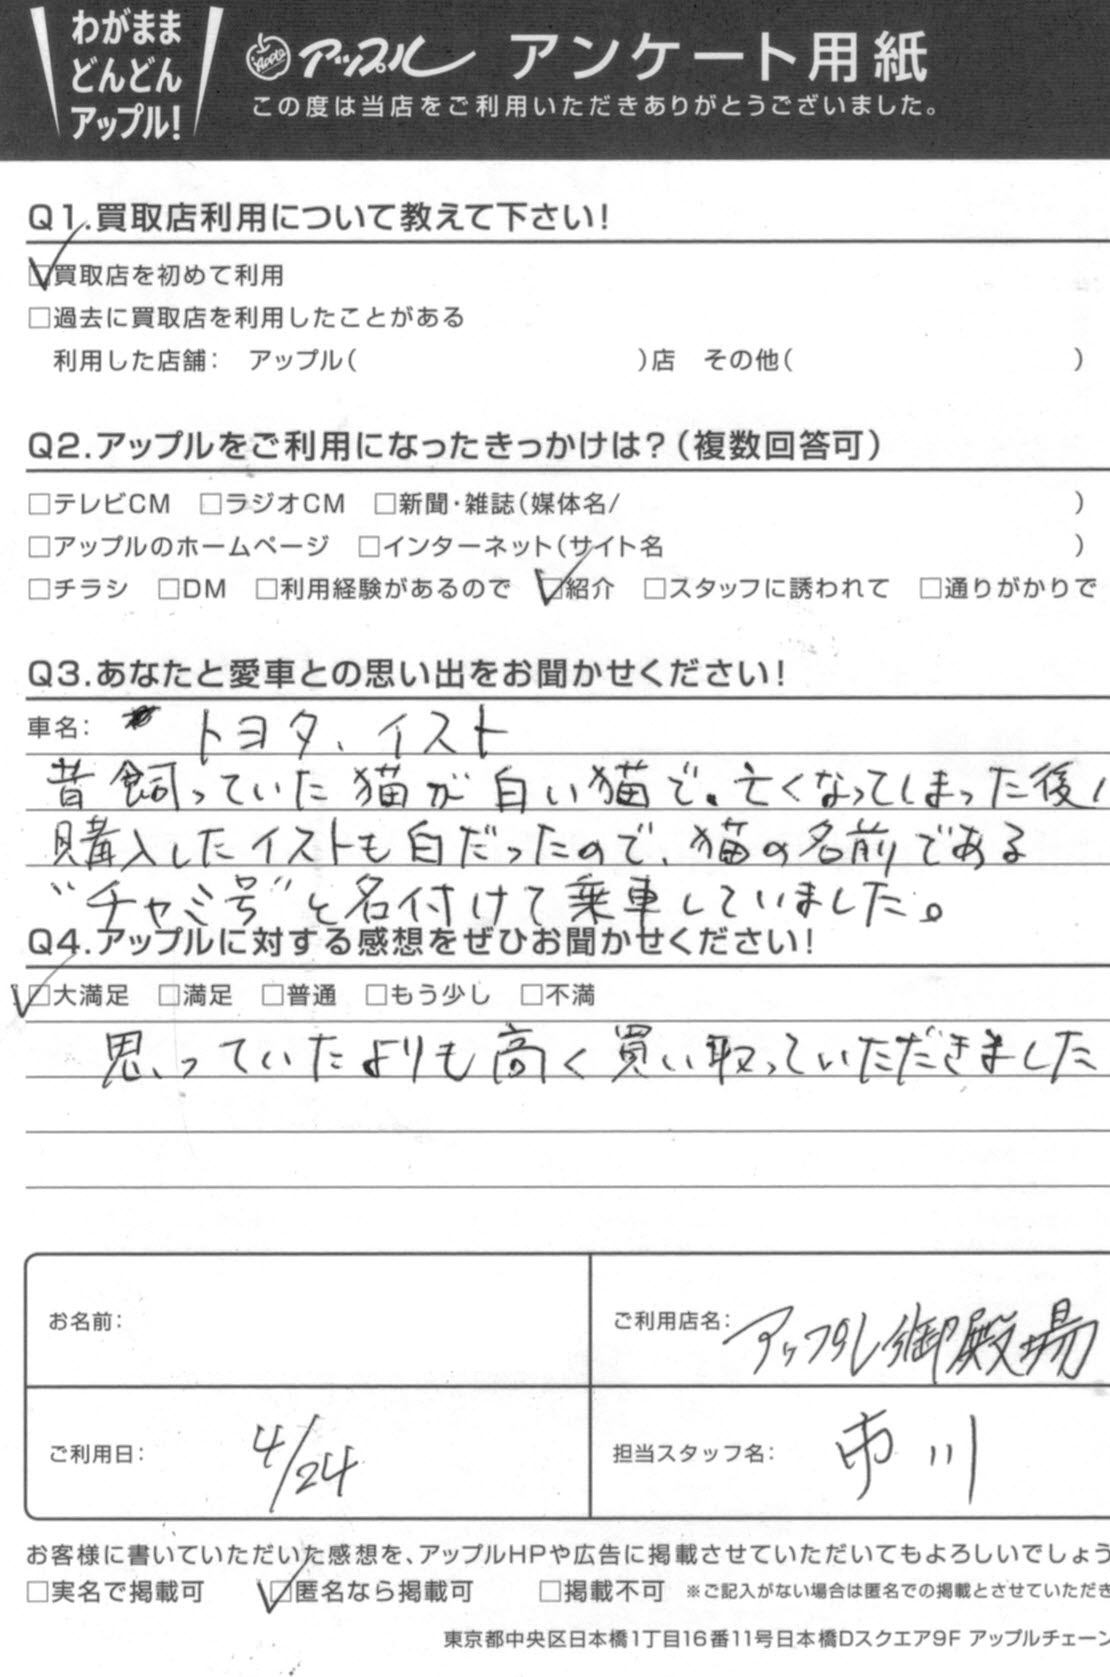 わがまま
どんどん
アップル!
Apple アップル アンケート用紙
この度は当店をご利用いただきありがとうございました。
Q1.買取店利用について教えて下さい!
☑買取店を初めて利用
□過去に買取店を利用したことがある
利用した店舗: アップル( )店 その他( )
Q2.アップルをご利用になったきっかけは?(複数回答可)
□テレビCM □ラジオCM □新聞・雑誌(媒体名/ )
□アップルのホームページ □インターネット(サイト名 )
□チラシ □DM □利用経験があるので ☑紹介 □スタッフに誘われて □通りがかりで
Q3.あなたと愛車との思い出をお聞かせください!
車名: トヨタ、イスト
昔飼っていた猫が白い猫で、亡くなってしまった後に
購入したイストも白だったので、猫の名前である
"チャミ号"と名付けて乗車していました。
Q4.アップルに対する感想をぜひお聞かせください!
☑大満足 □満足 □普通 □もう少し □不満
思っていたよりも高く買い取っていただきました
お名前:
ご利用店名: アップル御殿場
ご利用日: 4/24
担当スタッフ名: 市川
お客様に書いていただいた感想を、アップルHPや広告に掲載させていただいてもよろしいでしょう
□実名で掲載可 ☑匿名なら掲載可 □掲載不可 ※ご記入がない場合は匿名での掲載とさせていただき
東京都中央区日本橋1丁目16番11号日本橋Dスクエア9F アップルチェーン